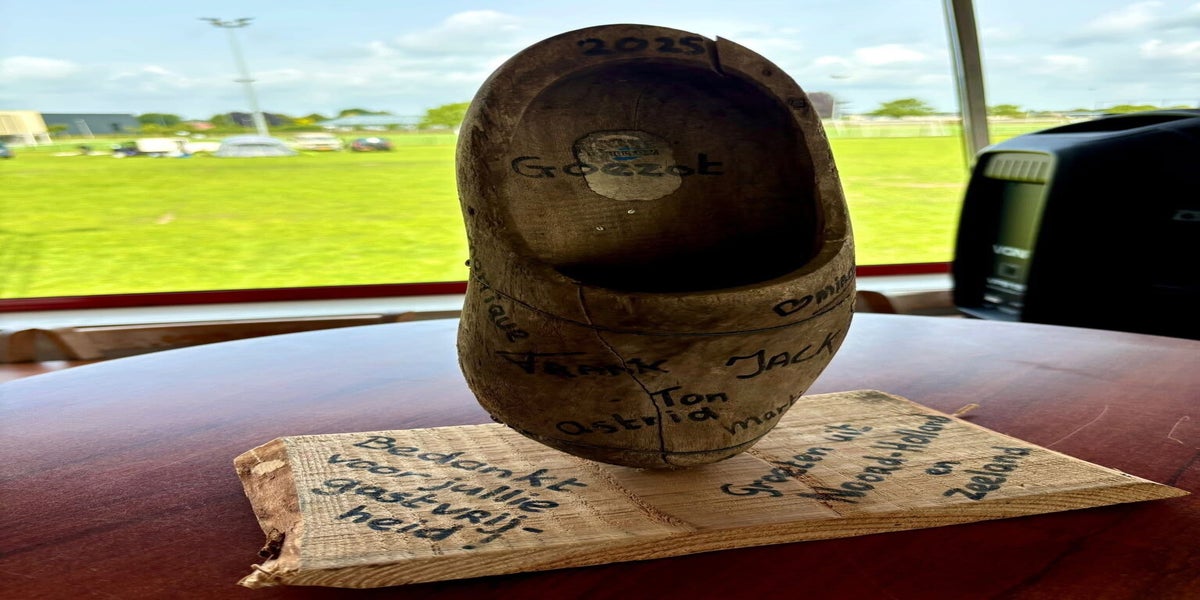 2025
Gozzot
Frank
JACK
Ton
astrid
Bedankt
voor jullie
gastvrij-
heid.
Groeten uit
Noord-Holland
en
zeeland